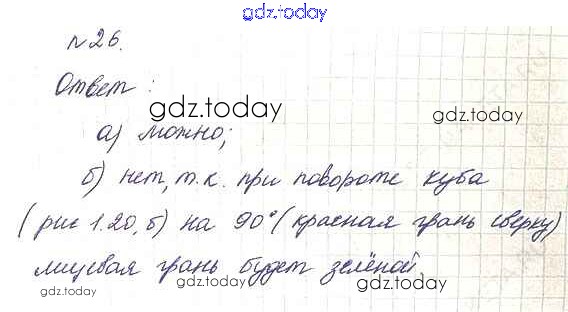 gdz.today
№26.
Ответ:
gdz.today
gdz.today
а) можно;
б) нет, т.к. при повороте куба
(рис 1.20, б) на 90° (красная грань сверху)
лицевая грань будет зелёной.
gdz.today
gdz.today